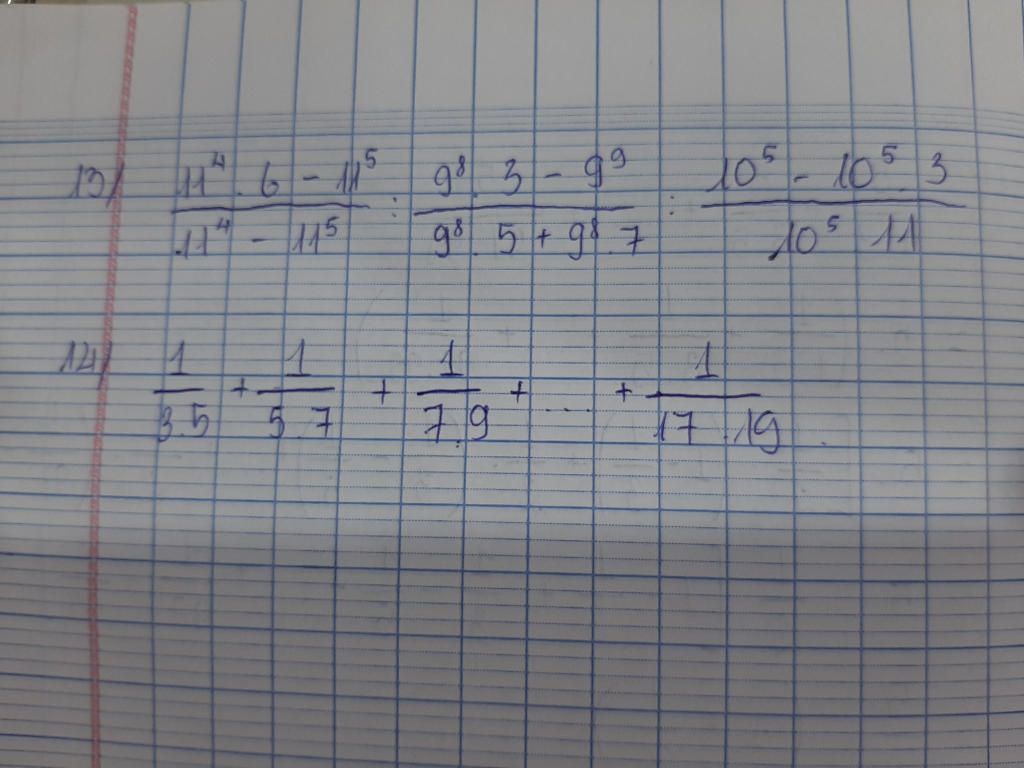 13/ (11⁴ . 6 - 11⁵)/(11⁴ - 11⁵) : (9⁸ . 3 - 9⁹)/(9⁸ . 5 + 9⁸ . 7) : (10⁵ - 10⁵ . 3)/(10⁵ 11)
14/ 1/(3.5) + 1/(5.7) + 1/(7.9) + .... + 1/(17.19)